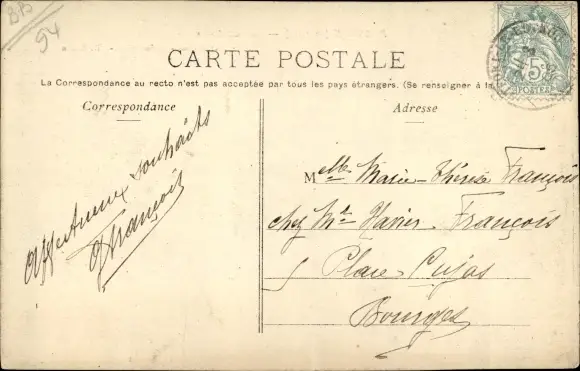 BB
94
CARTE POSTALE
La Correspondance au recto n'est pas acceptée par tous les pays étrangers. (Se renseigner à la
Correspondance
Adresse
Affectueux souhaits
François
Melle Marie-Thérèse François
chez Mr Xavier François
5 Place Cujas
Bourges
5c
POSTES